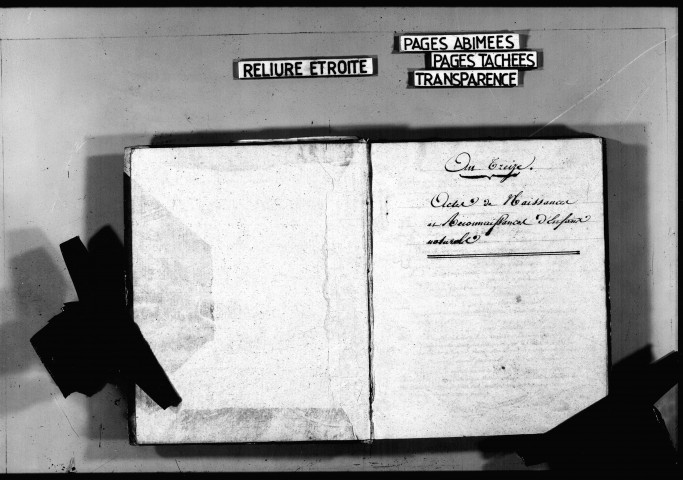 RELIURE ETROITE
PAGES ABIMEES
PAGES TACHEES
TRANSPARENCE
An Treize.
Actes de Naissances
et Reconnaissances d'Enfans
naturels